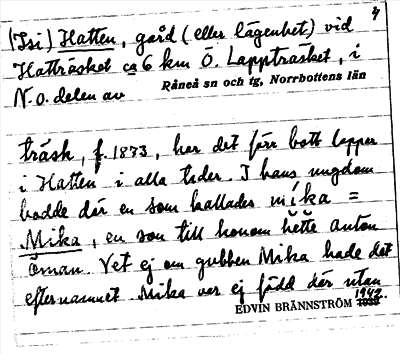 4
(Isi) Hatten, gård (eller lägenhet) vid
Hatträsket ca 6 km Ö. Lappträsket, i
Råneå sn och tg, Norrbottens län
N.O. delen av
träsk, f. 1873, har det förr bott lappar
i Hatten i alla tider. I hans ungdom
bodde där en som kallades mika =
Mika, en son till honom hette Anton
Öman. Vet ej om gubben Mika hade det
efternamnet. Mika var ej född där utan
EDVIN BRÄNNSTRÖM 1942.